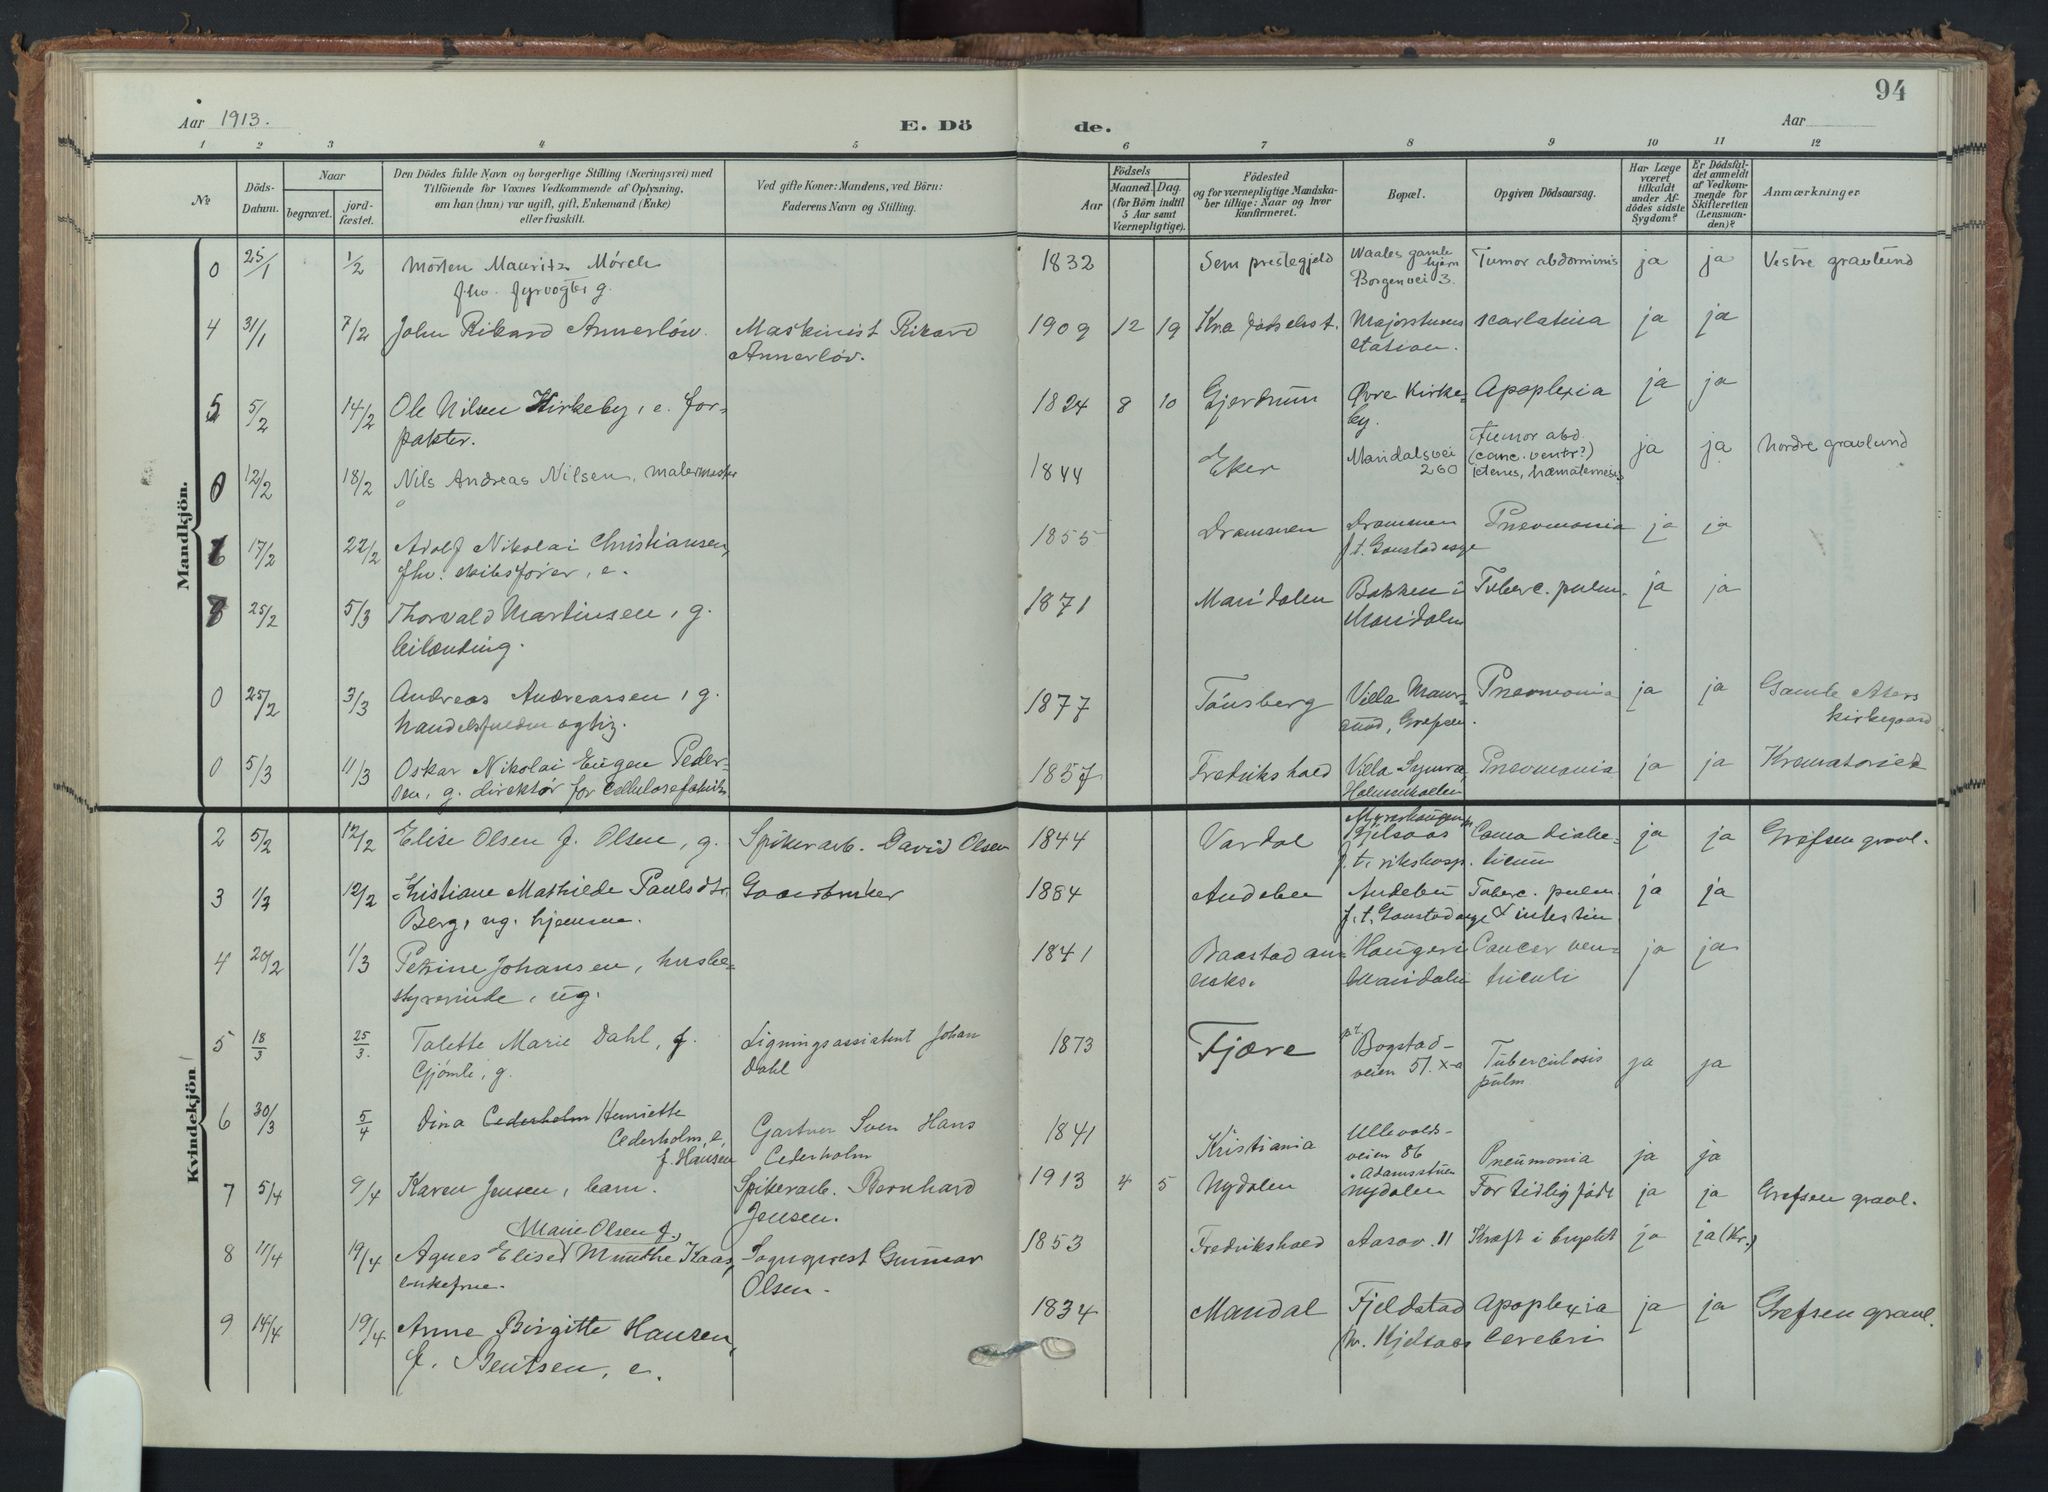 94
Aar 1913.
E. Dö
de.
Aar
1 2 3 4 5 6 7 8 9 10 11 12
№
Döds-
Datum.
Naar
begravet.
jord-
fæstet.
Den Dödes fulde Navn og borgerlige Stilling (Næringsvei) med
Tilföiende for Voxnes Vedkommende af Oplysning,
om han (hun) var ugift, gift, Enkemand (Enke)
eller fraskilt.
Ved gifte Koner: Mandens, ved Börn:
Faderens Navn og Stilling.
Födsels
Aar
Maaned. Dag.
(for Börn indtil
5 Aar samt
Værnepligtige).
Födested
og for værnepligtige Mandska-
ber tillige: Naar og hvor
konfirmeret.
Bopæl.
Opgiven Dödsaarsag.
Har Læge
været
tilkaldt
under Af-
dödes sidste
Sygdom?
Er Dödsfal-
det anmeldt
af Vedkom-
mende for
Skifteretten
(Lensman-
den)?
Anmærkninger
Mandkjön.
0 25/1 1/2 Morten Mauritz Mörch 1832 Sem prestegjeld Waales gamle Tumor abdominis ja ja Vestre gravlund
fhv. fyrvogter g. hjem
Borgenvei 3.
4 31/1 7/2 John Rikard Annerlöv. Maskinist Rikard 1909 12 19 Kra fødselsst. Majorstuens scarlatina ja ja
Annerlöv. station.
5 5/2 14/2 Ole Nilsen Kirkeby, e. for- 1824 8 10 Gjerdrum Øvre Kirke- Apoplexia ja ja
pakter. by.
0 12/2 18/2 Nils Andreas Nilsen, malermester 1844 Eker Maridalsvei Tumor abd. ja ja Nordre gravlund
260 (canc. ventr?)
Icterus, hæmatemesis
17/2 22/2 Adolf Nikolai Christiansen, 1855 Drammen Drammen Pneumonia ja ja
fhv. skibsfører, e. f.t. Gaustad asyl
25/2 5/3 Thorvald Martinsen, g. 1871 Maridalen Bakken i Tuberc. pulm. ja ja
leilænding. Maridalen
0 25/2 3/3 Andreas Andreassen, g. 1877 Tönsberg Villa Pneumonia ja ja Gamle Akers
handelsfuldmægtig. Grefsen. kirkegaard
0 5/3 11/3 Oskar Nikolai Eugen Peder- 1857 Fredrikshald Villa Pneumonia ja ja Krematoriet
sen, g. direktör for Cellulosefabrik Holmenkollen
Kvindekjön
2 5/2 12/2 Elise Olsen f. Olsen, g. Spikerarb. David Olsen 1844 Vardal Kjelsaas Coma diabe- ja ja Grefsen gravl.
f.t. rikshosp. ticum
3 1/2 12/2 Kristiane Mathilde Paulsdtr. Gaardbruker 1884 Andebu Andebu Tuberc. pulm. ja ja
Berg, ug. hjemme. f.t. Gaustad asyl & intestin
4 20/2 1/3 Petrine Johansen, husbe- 1841 Baastad an- Haugen i Cancer ven- ja ja
styrerinde, ug. neks. Maridalen triculi
5 18/3 25/3. Talette Marie Dahl, f. Ligningsassistent Johan 1873 Fjære Bogstad- Tuberculosis ja ja
Gjömle, g. Dahl veien 51. X-a pulm
6 30/3 5/4 Dina Cederholm Henriette Gartner Sven Hans 1841 Kristiania Ullevolds- Pneumonia ja ja
Cederholm, e, Cederholm veien 86
f. Hansen Adamstuen
7 5/4 9/4 Karen Jensen, barn. Spikerarb. Bernhard 1913 4 5 Nydalen Nydalen For tidlig född ja ja Grefsen gravl.
Jensen.
Marie Olsen f.
8 11/4 19/4 Agnes Elise Munthe Kaas, Sogneprest Gunnar 1853 Fredrikshald Aasov. 11 Kræft i brystet ja ja (Kr.)
enkefrue. Olsen.
9 14/4 19/4 Anne Birgitte Hansen, 1834 Mandal Fjeldstad Apoplexia ja ja Grefsen gravl.
f. Bentsen, e. Kjelsaas cerebri